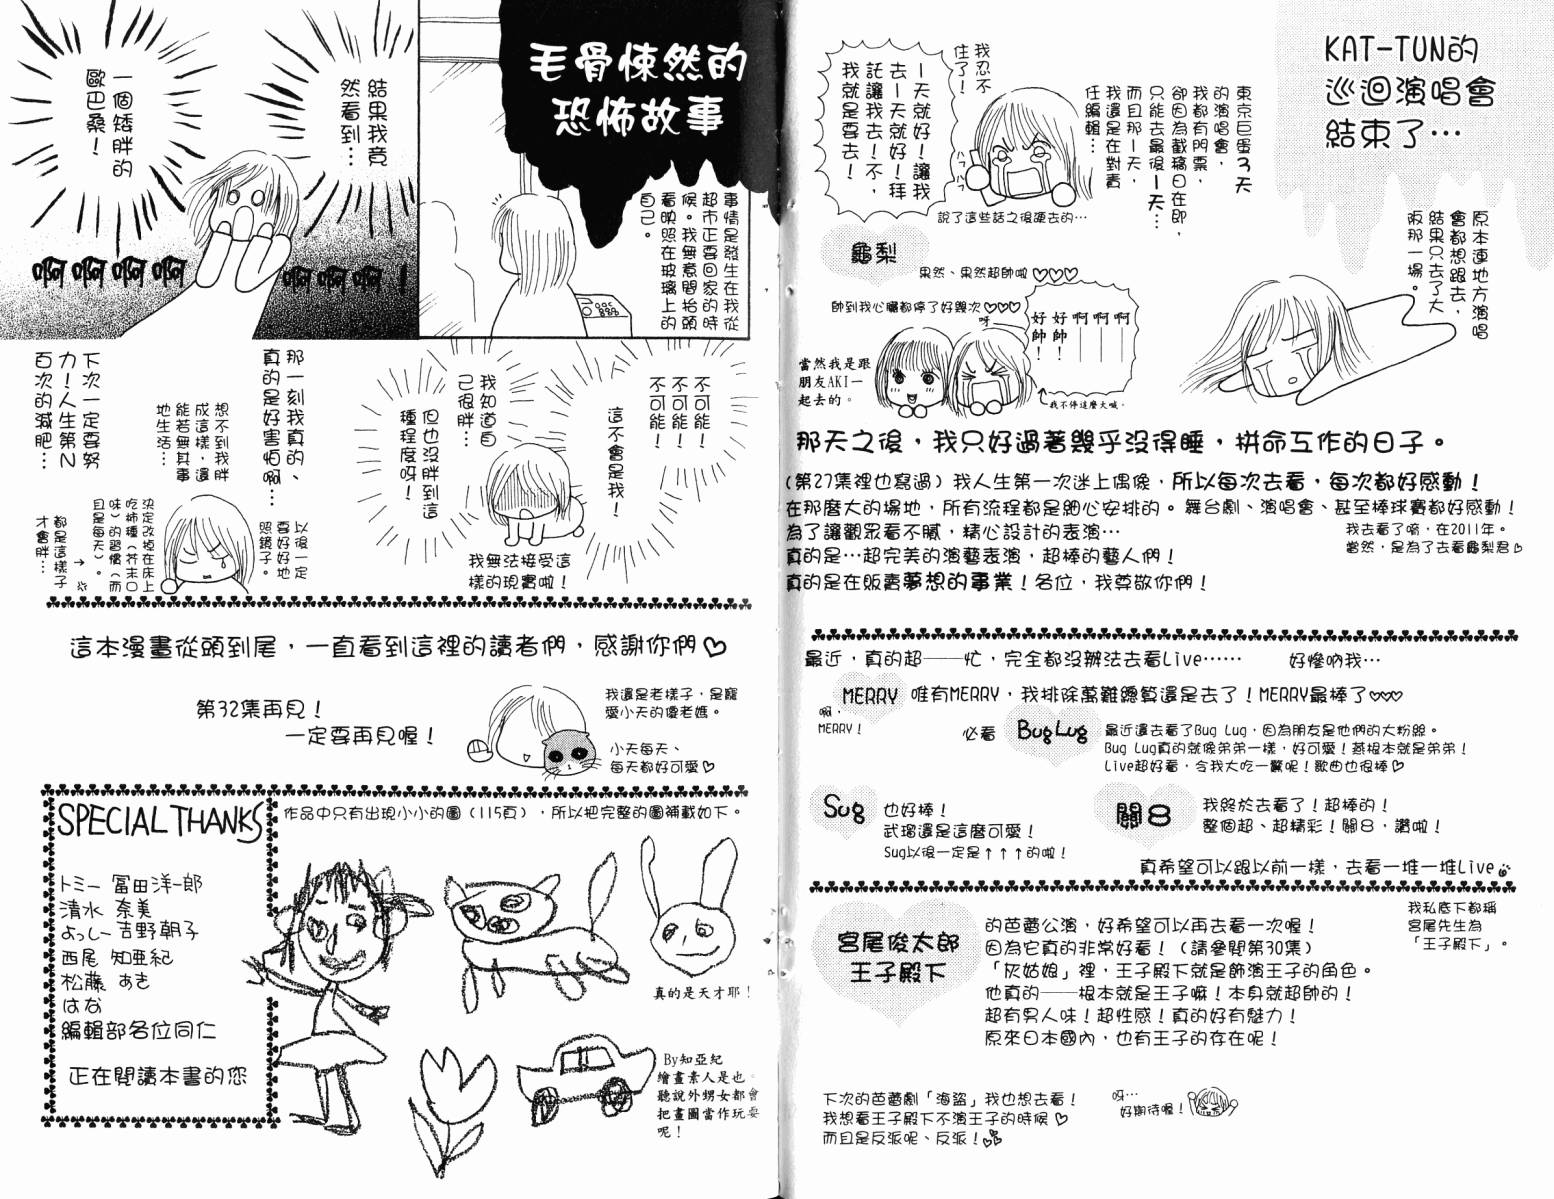 KAT-TUN的
巡迴演唱會
結束了…
原本連地方演唱
會都想跟去，
結果只去了大
阪那一場。
東京巨蛋3天
的演唱會，
我都有門票，
卻因為截稿日在即，
只能去最後一天…
而且那一天，
我還是在對責
任編輯…
我忍不
住了！
一天就好！讓我
去一天就好！拜
託讓我去！不，
我就是要去！
說了這些話之後硬去的…
龜梨
果然、果然超帥啦♡♡♡
帥到我心臟都停了好幾次♡♡♡
呀
啊——
啊——
啊——
好帥！
好帥！
我不停這麼大喊。
當然我是跟
朋友AKI一
起去的。
那天之後，我只好過著幾乎沒得睡，拼命工作的日子。
（第27集裡也寫過）我人生第一次迷上偶像，所以每次去看，每次都好感動！
在那麼大的場地，所有流程都是細心安排的。舞台劇、演唱會、甚至棒球賽都好感動！
為了讓觀眾看不膩，精心設計的表演…
我去看了唷，在2011年。
當然，是為了去看龜梨君♡
真的是…超完美的演藝表演，超棒的藝人們！
真的是在販賣夢想的事業！各位，我尊敬你們！
最近，真的超——忙，完全都沒辦法去看Live……
好慘吶我…
MERRY
唯有MERRY，我排除萬難總算還是去了！MERRY最棒了♡♡♡
啊，
MERRY！
必看
BugLug
最近還去看了Bug Lug，因為朋友是他們的大粉絲。
Bug Lug真的就像弟弟一樣，好可愛！燕根本就是弟弟！
Live超好看，令我大吃一驚呢！歌曲也很棒♡
Sug
也好棒！
武瑠還是這麼可愛！
Sug以後一定是↑↑↑的啦！
關8
我終於去看了！超棒的！
整個超、超精彩！關8，讚啦！
真希望可以跟以前一樣，去看一堆一堆Live
宮尾俊太郎
王子殿下
的芭蕾公演，好希望可以再去看一次喔！
因為它真的非常好看！（請參閱第30集）
「灰姑娘」裡，王子殿下就是飾演王子的角色。
他真的——根本就是王子嘛！本身就超帥的！
超有男人味！超性感！真的好有魅力！
原來日本國內，也有王子的存在呢！
我私底下都稱
宮尾先生為
「王子殿下」。
下次的芭蕾劇「海盜」我也想去看！
我想看王子殿下不演王子的時候♡
而且是反派呢、反派！
呀…
好期待喔！
毛骨悚然的
恐怖故事
事情是發生在我從
超市正要回家的時
候。我無意間抬頭
看映照在玻璃上的
自己。
結果我竟
然看到…
一個矮胖的
歐巴桑！
啊啊啊啊
啊啊啊！
不可能！
不可能！
不可能！
這不會是我！
我知道自
己很胖…
但也沒胖到這
種程度呀！
我無法接受這
樣的現實啦！
那一刻我真的、
真的是好害怕啊…
想不到我胖
成這樣，還
能若無其事
地生活…
下次一定要努
力！人生第N
百次的減肥…
以後一定
要好好地
照鏡子。
決定改掉在床上
吃柿種（芥末口
味）的習慣（而
且是每天）。
都是這樣子
才會胖…
這本漫畫從頭到尾，一直看到這裡的讀者們，感謝你們♡
第32集再見！
一定要再見喔！
我還是老樣子，是寵
愛小天的傻老媽。
小天每天、
每天都好可愛♡
SPECIAL THANKS
トミー 冨田洋一郎
清水 奈美
よっしー 吉野朝子
西尾 知亜紀
松藤 あき
はな
編輯部各位同仁
正在閱讀本書的您
作品中只有出現小小的圖（115頁），所以把完整的圖補載如下。
真的是天才耶！
By知亞紀
繪畫素人是也。
聽說外甥女都會
把畫圖當作玩耍
呢！